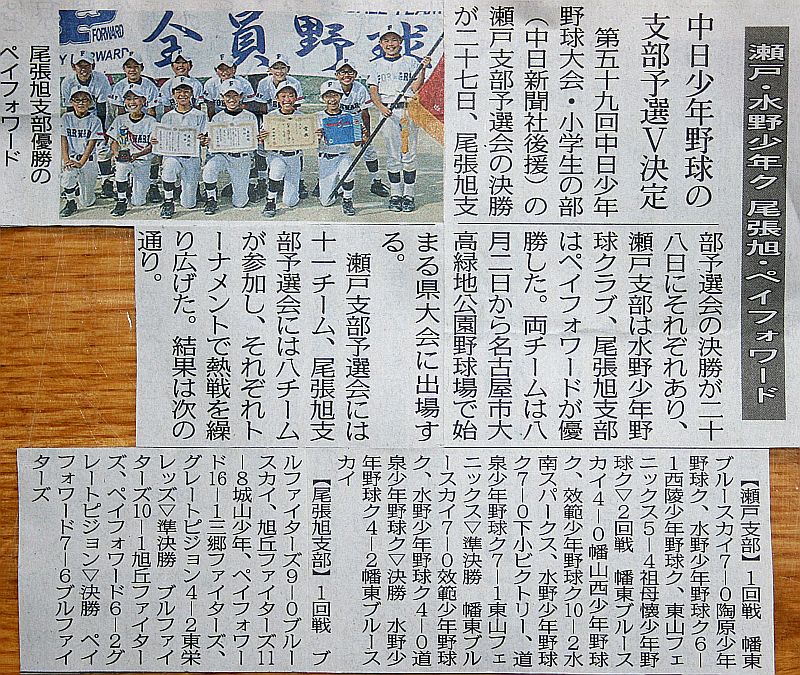 瀬戸・水野少年ク 尾張旭・ペイフォワード
中日少年野球の
支部予選V決定
第五十九回中日少年
野球大会・小学生の部
（中日新聞社後援）の
瀬戸支部予選会の決勝
が二十七日、尾張旭支
全員野球
FORWARD
尾張旭支部優勝の
ペイフォワード
部予選会の決勝が二十
八日にそれぞれあり、
瀬戸支部は水野少年野
球クラブ、尾張旭支部
はペイフォワードが優
勝した。両チームは八
月二日から名古屋市大
高緑地公園野球場で始
まる県大会に出場す
る。
瀬戸支部予選会には
十一チーム、尾張旭支
部予選会には八チーム
が参加し、それぞれト
ーナメントで熱戦を繰
り広げた。結果は次の
通り。
【瀬戸支部】1回戦 幡東
ブルースカイ7―0陶原少年
野球ク、水野少年野球ク6―
1西陵少年野球ク、東山フェ
ニックス5―4祖母懐少年野
球ク▽2回戦 幡東ブルース
カイ4―0幡山西少年野球
ク、效範少年野球ク10―2水
南スパークス、水野少年野球
ク7―0下小ビクトリー、道
泉少年野球ク7―1東山フェ
ニックス▽準決勝 幡東ブル
ースカイ7―0效範少年野球
ク、水野少年野球ク4―0道
泉少年野球ク▽決勝 水野少
年野球ク4―2幡東ブルース
カイ
【尾張旭支部】1回戦 ブ
ルファイターズ9―0ブルー
スカイ、旭丘ファイターズ11
―8城山少年、ペイフォワー
ド16―1三郷ファイターズ、
グレートピジョン4―2東栄
レッズ▽準決勝 ブルファイ
ターズ10―1旭丘ファイター
ズ、ペイフォワード6―2グ
レートピジョン▽決勝 ペイ
フォワード7―6ブルファイ
ターズ